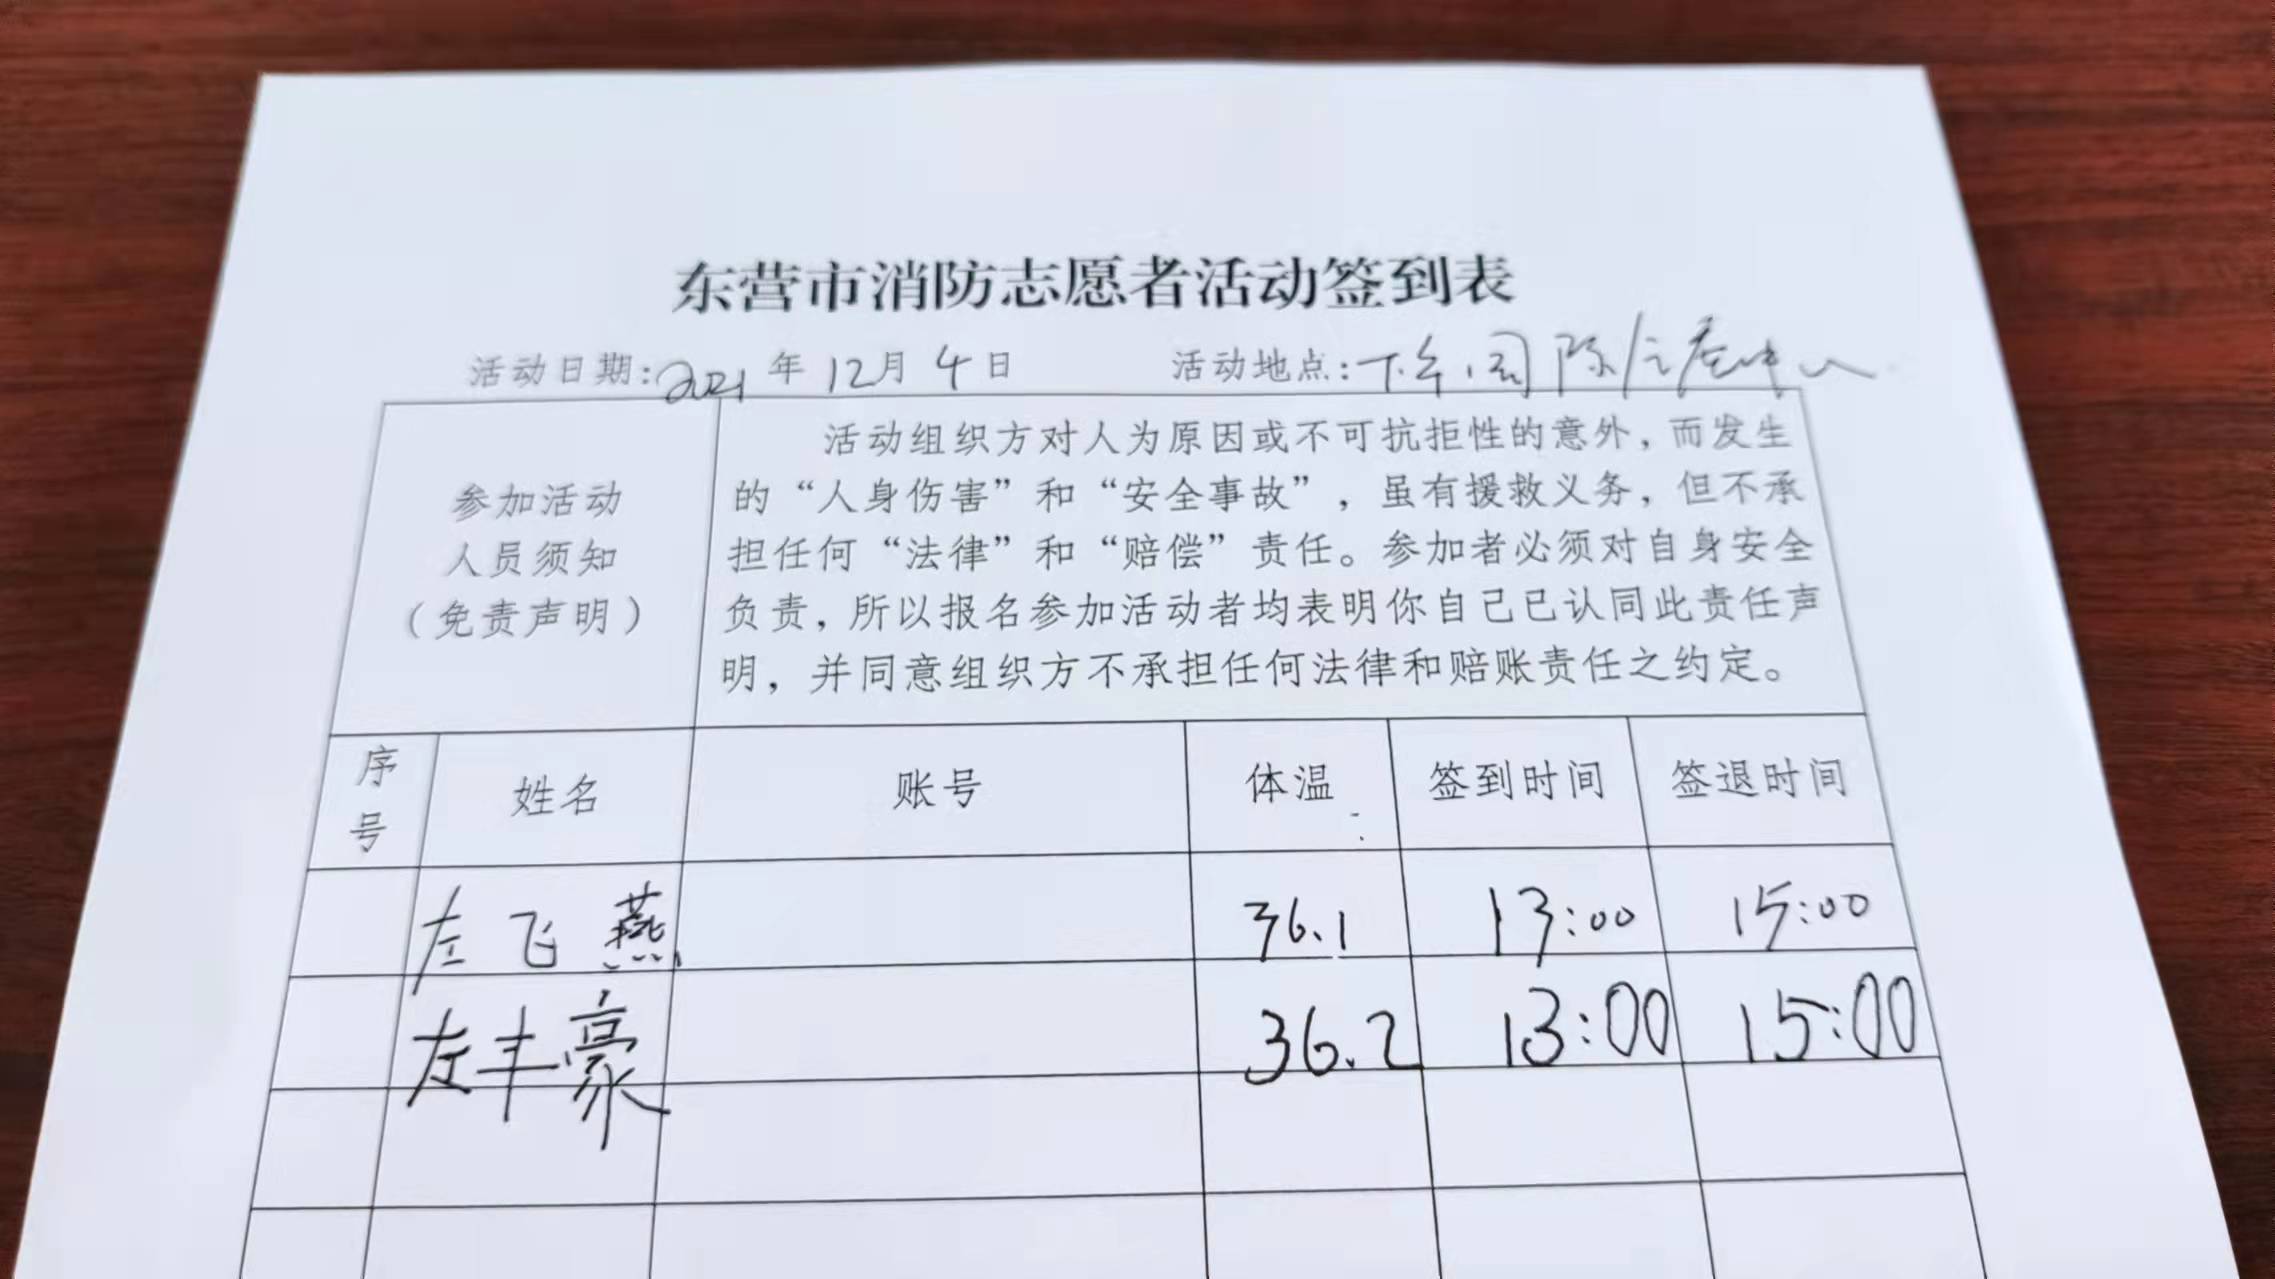 东营市消防志愿者活动签到表
活动日期:2021年12月4日 活动地点:
参加活动
人员须知
（免责声明）
活动组织方对人为原因或不可抗拒性的意外，而发生
的“人身伤害”和“安全事故”，虽有援救义务，但不承
担任何“法律”和“赔偿”责任。参加者必须对自身安全
负责，所以报名参加活动者均表明你自己已认同此责任声
明，并同意组织方不承担任何法律和赔账责任之约定。
序号 姓名 账号 体温 签到时间 签退时间
左飞燕 36.1 13:00 15:00
左丰豪 36.2 13:00 15:00